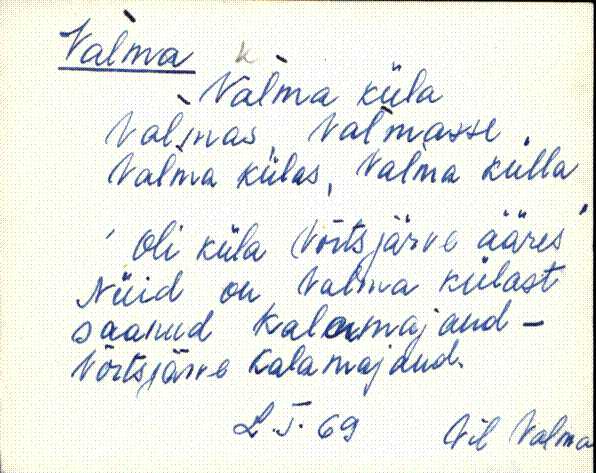 Valma k
Valma küla
Valmas, Valmasse,
Valma külas, Valma külla
'Oli küla Võrtsjärve ääres'
Nüid on Valma külast
saanud kalamajand –
Võrtsjärve kalamajand.
L. J. 69 Vil Valma